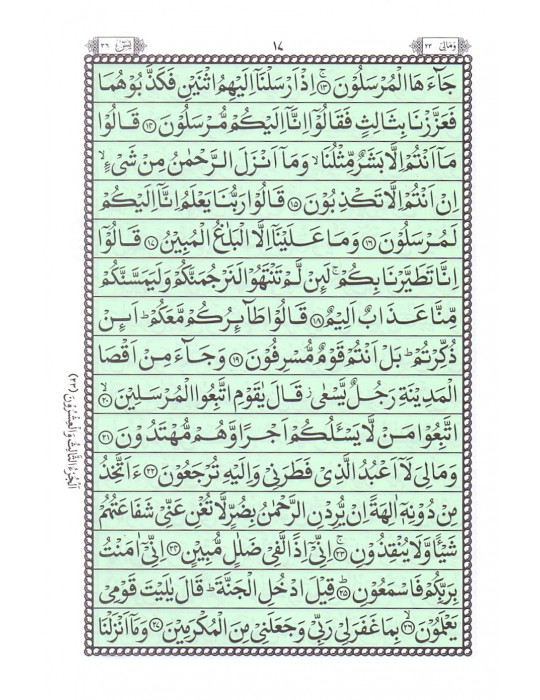 وَمَالِيَ ٢٣
١٧
يٰسٓ ٣٦
جَآءَهَا الْمُرْسَلُوْنَ ۚ‏﴿۱۳﴾ اِذْ اَرْسَلْنَاۤ اِلَيْهِمُ اثْنَيْنِ فَكَذَّبُوْهُمَا
فَعَزَّزْنَا بِثَالِثٍ فَقَالُوْۤا اِنَّاۤ اِلَيْكُمْ مُّرْسَلُوْنَ ﴿۱۴﴾ قَالُوْا
مَاۤ اَنْتُمْ اِلَّا بَشَرٌ مِّثْلُنَا ۙ وَمَاۤ اَنْزَلَ الرَّحْمٰنُ مِنْ شَيْءٍ ۙ
اِنْ اَنْتُمْ اِلَّا تَكْذِبُوْنَ ﴿۱۵﴾ قَالُوْا رَبُّنَا يَعْلَمُ اِنَّاۤ اِلَيْكُمْ
لَمُرْسَلُوْنَ ﴿۱۶﴾ وَمَا عَلَيْنَاۤ اِلَّا الْبَلٰغُ الْمُبِيْنُ ﴿۱۷﴾ قَالُوْۤا
اِنَّا تَطَيَّرْنَا بِكُمْ ۚ لَئِنْ لَّمْ تَنْتَهُوْا لَنَرْجُمَنَّكُمْ وَلَيَمَسَّنَّكُمْ
مِّنَّا عَذَابٌ اَلِيْمٌ ﴿۱۸﴾ قَالُوْا طَآئِرُكُمْ مَّعَكُمْ ؕ اَئِنْ
ذُكِّرْتُمْ ؕ بَلْ اَنْتُمْ قَوْمٌ مُّسْرِفُوْنَ ﴿۱۹﴾ وَجَآءَ مِنْ اَقْصَا
الْمَدِيْنَةِ رَجُلٌ يَّسْعٰى ۫ قَالَ يٰقَوْمِ اتَّبِعُوا الْمُرْسَلِيْنَ ۙ﴿۲۰﴾
اتَّبِعُوْا مَنْ لَّا يَسْئَلُكُمْ اَجْرًا وَّهُمْ مُّهْتَدُوْنَ ﴿۲۱﴾
وَمَالِيَ لَاۤ اَعْبُدُ الَّذِيْ فَطَرَنِيْ وَاِلَيْهِ تُرْجَعُوْنَ ﴿۲۲﴾ ءَاَتَّخِذُ
مِنْ دُوْنِهٖۤ اٰلِهَةً اِنْ يُّرِدْنِ الرَّحْمٰنُ بِضُرٍّ لَّا تُغْنِ عَنِّيْ شَفَاعَتُهُمْ
شَيْئًا وَّلَا يُنْقِذُوْنِ ۚ﴿۲۳﴾ اِنِّيْۤ اِذًا لَّفِيْ ضَلٰلٍ مُّبِيْنٍ ﴿۲۴﴾ اِنِّيْۤ اٰمَنْتُ
بِرَبِّكُمْ فَاسْمَعُوْنِ ؕ﴿۲۵﴾ قِيْلَ ادْخُلِ الْجَنَّةَ ؕ قَالَ يٰلَيْتَ قَوْمِيْ
يَعْلَمُوْنَ ۙ﴿۲۶﴾ بِمَا غَفَرَ لِيْ رَبِّيْ وَجَعَلَنِيْ مِنَ الْمُكْرَمِيْنَ ﴿۲۷﴾ وَمَاۤ اَنْزَلْنَا
اَلْجُزْءُ الثَّالِثُ وَالْعِشْرُوْنَ (٢٣)